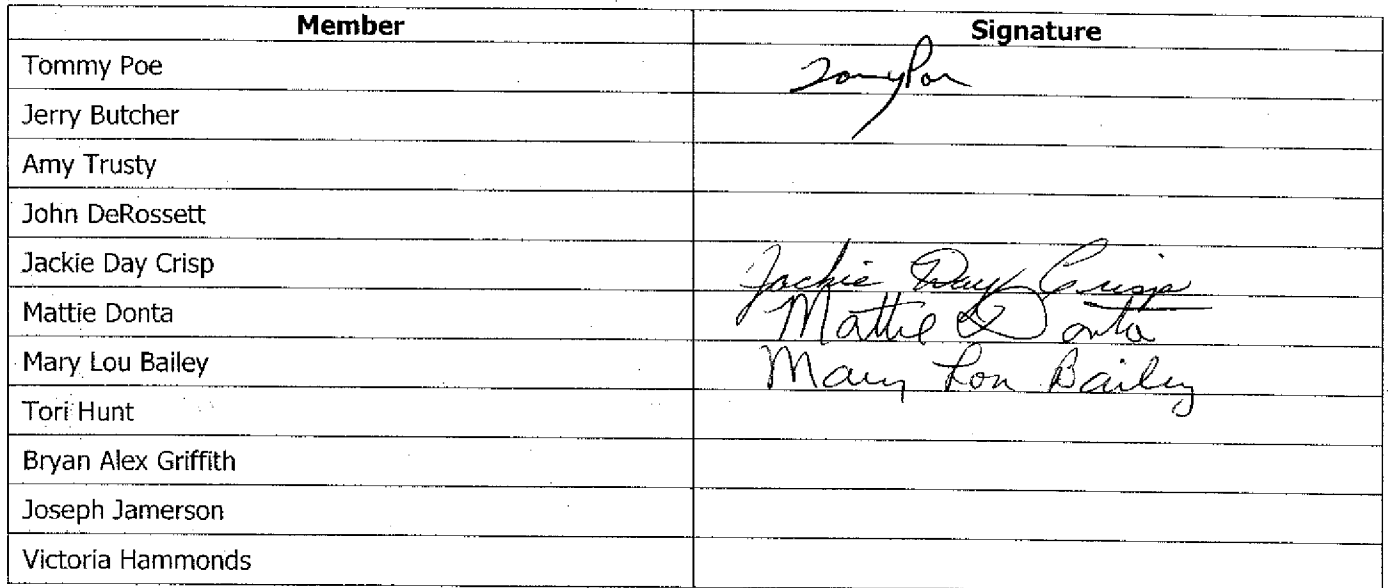 Member Signature
Tommy Poe Tommy Poe
Jerry Butcher
Amy Trusty
John DeRossett
Jackie Day Crisp Jackie Day Crisp
Mattie Donta Mattie Donta
Mary Lou Bailey Mary Lou Bailey
Tori Hunt
Bryan Alex Griffith
Joseph Jamerson
Victoria Hammonds